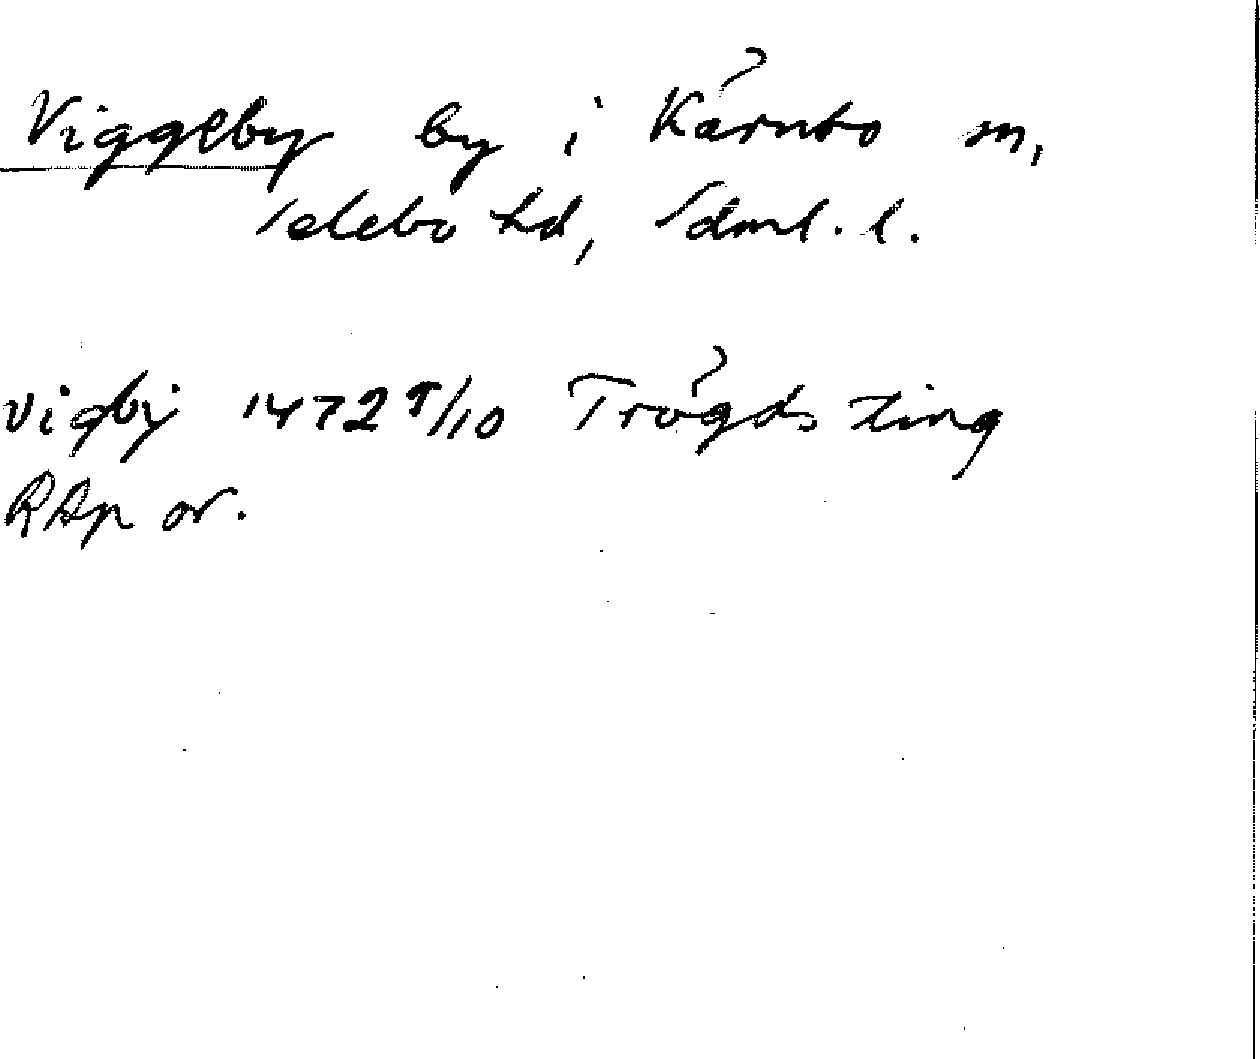 Viggeby by i Kärnbo sn,
Selebo hd, Södml. l.
vigby 1472 5/10 Trögds ting
RAp or.